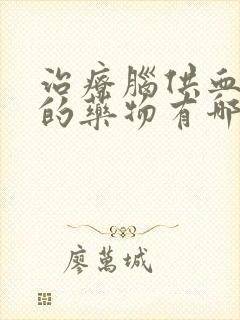 治療腦供血
的藥物有哪
廖萬城